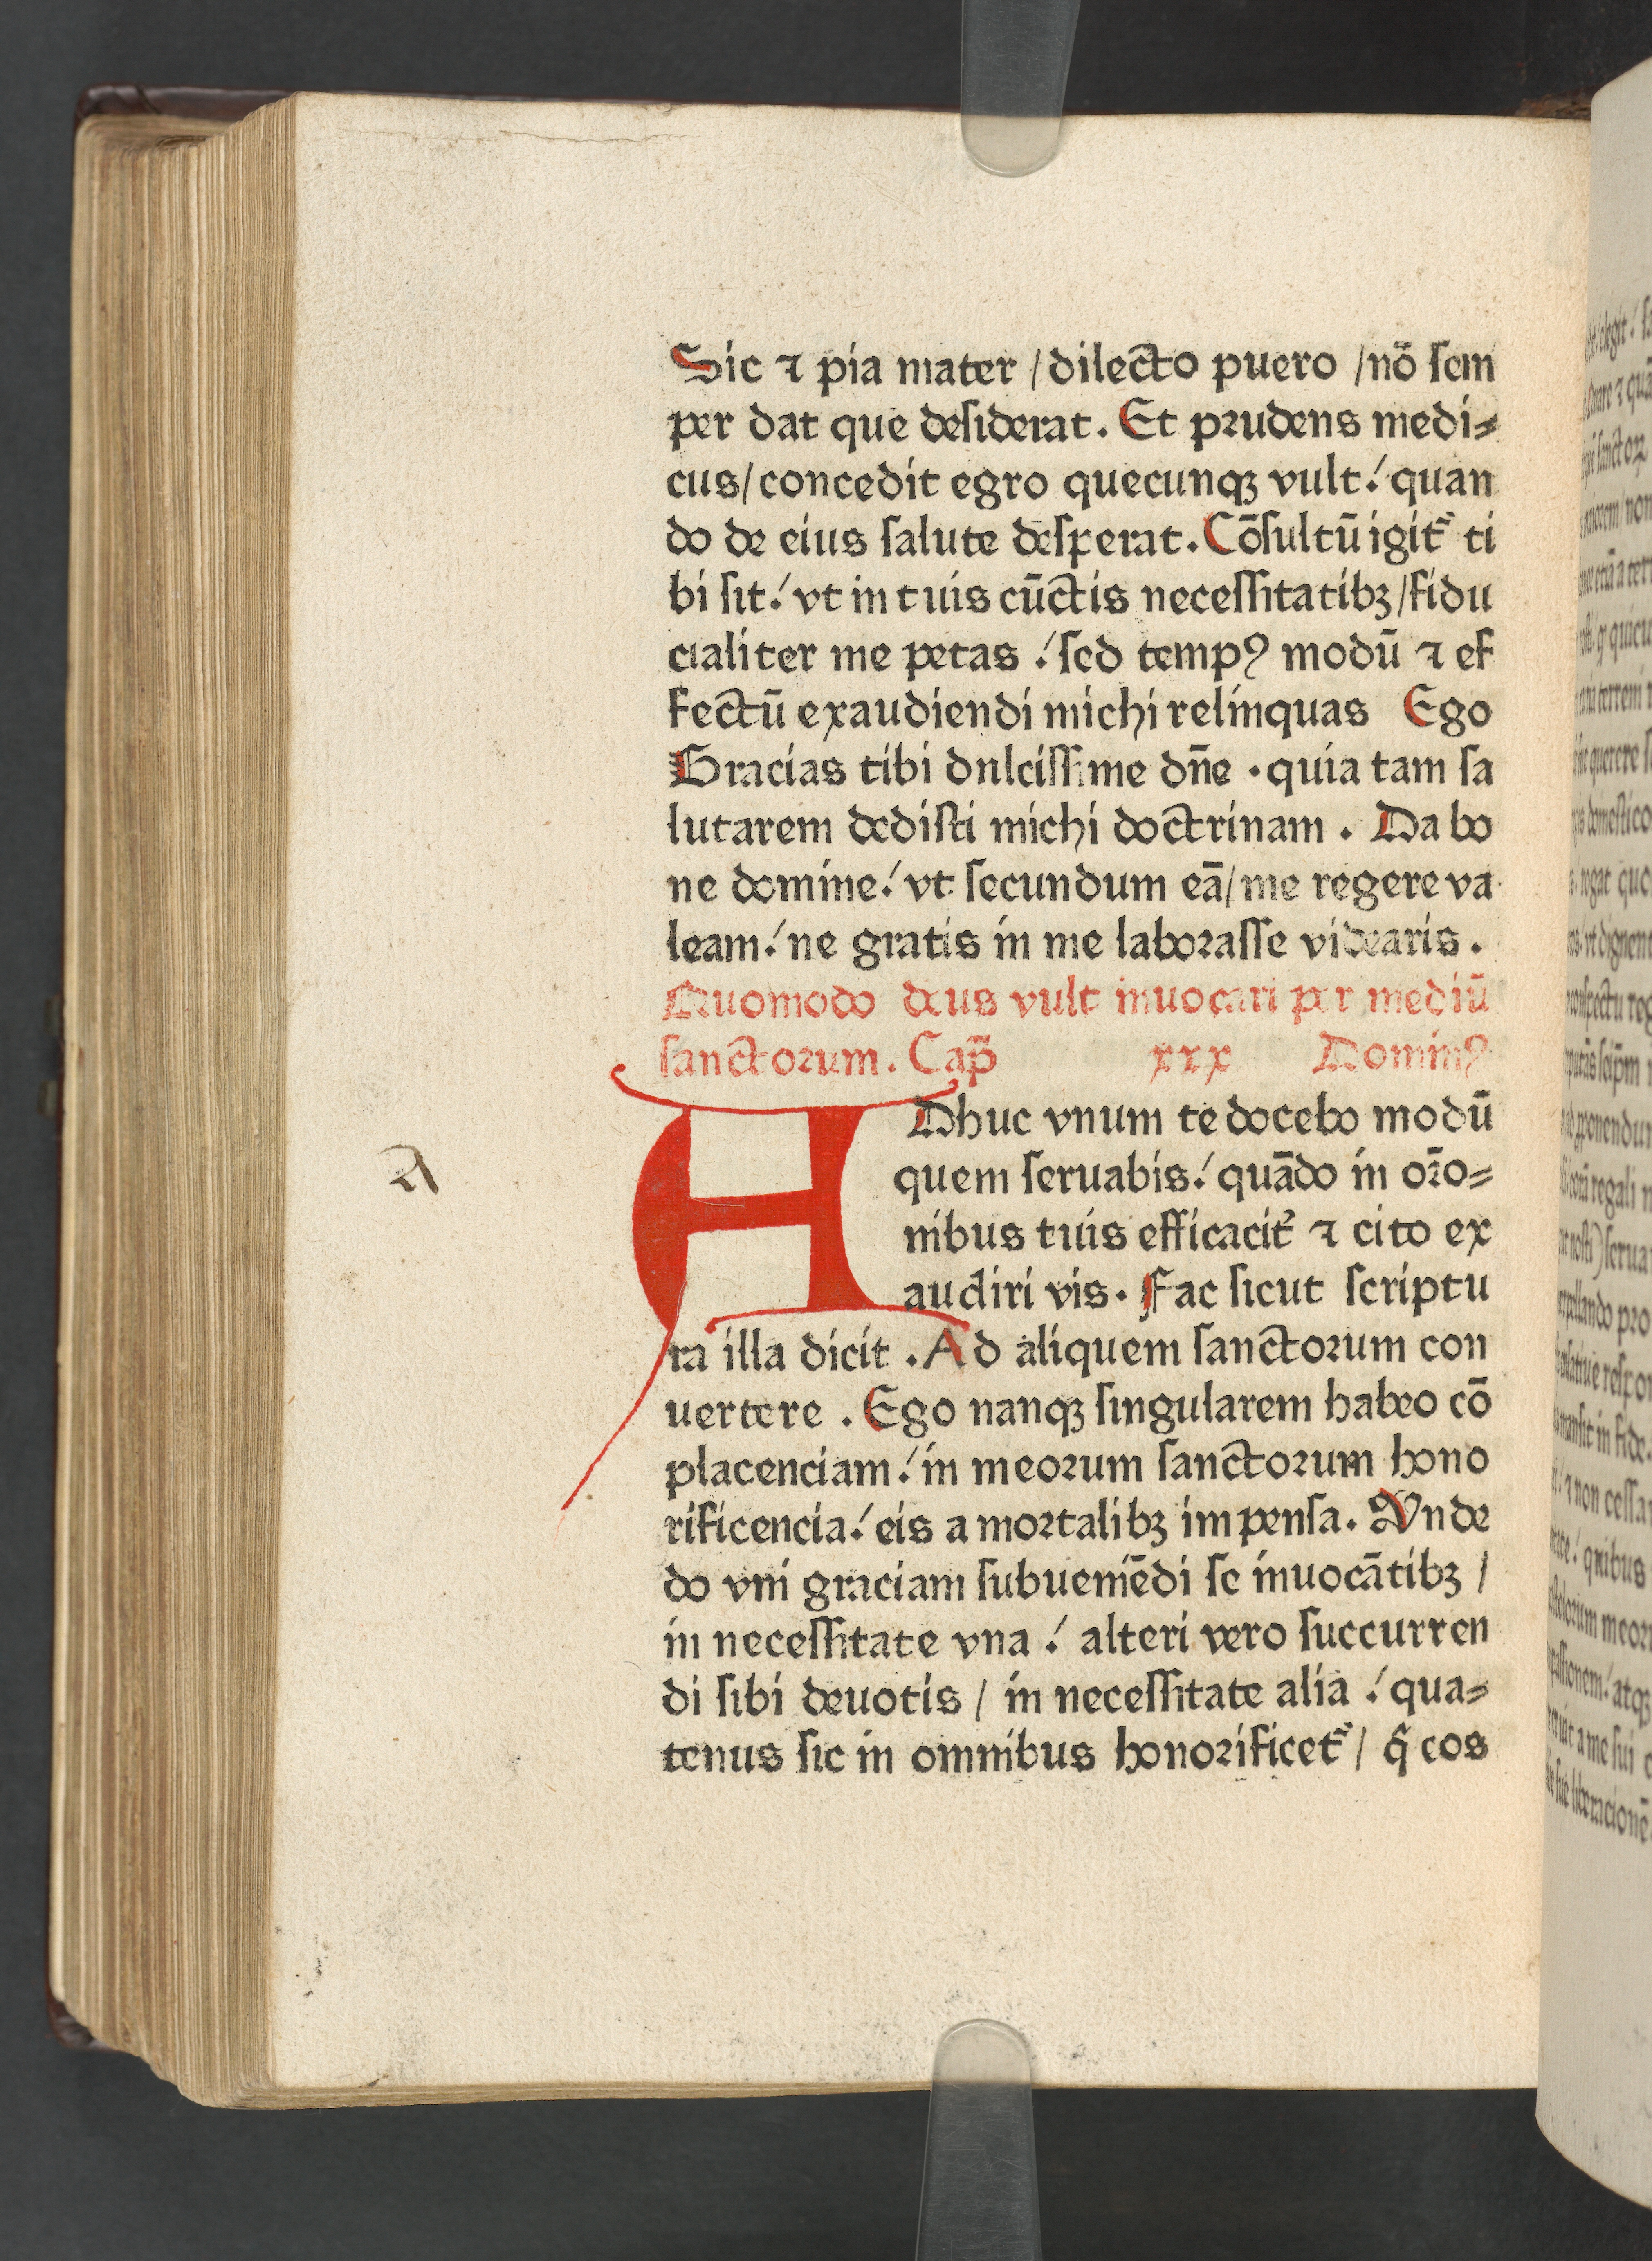 Sic ⁊ pia mater / dilecto puero / nō ſem
per dat que deſiderat. Et prudens medi⸗
cus / concedit egro quecunqꝫ vult: quan
do de eius ſalute deſperat. Cōſultū igit᷑ ti
bi ſit: vt in tuis cūctis neceſſitatibꝫ / fidu
cialiter me petas : ſed tempꝰ modū ⁊ ef
fectū exaudiendi michi relinquas Ego
Gracias tibi dnlciſſime dn̄e . quia tam ſa
lutarem dediſti michi doctrinam . Da bo
ne domine: vt ſecundum eā / me regere va
leam: ne gratis in me laboraſſe videaris .
Quomodo deus vult inuocari per mediū
ſanctorum . Cap̄ xxx Dominꝰ
A Dhuc vnum te docebo modū
A
quem ſeruabis: quādo in or̄o⸗
nibus tuis efficacit᷑ ⁊ cito ex
audiri vis . Fac ſicut ſcriptu
ra illa dicit . Ad aliquem ſanctorum con
uertere . Ego nanqꝫ ſingularem habeo cō
placenciam: in meorum ſanctorum hono
rificencia: eis a mortalibꝫ impenſa . Vnde
do vni graciam ſubueniēdi ſe inuocātibꝫ /
in neceſſitate vna : alteri vero ſuccurren
di ſibi deuotis / in neceſſitate alia : qua⸗
tenus ſic in omnibus honorificet᷑ / ꝙ eos